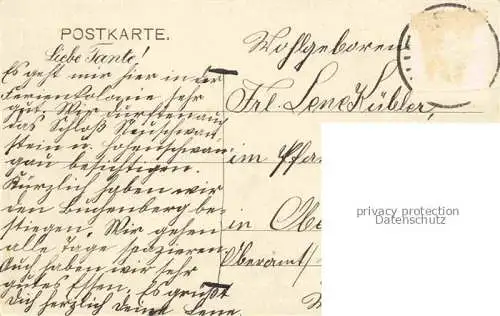 POSTKARTE.
Liebe Tante!
Es geht mir hier in der
Ferienkolonie sehr
gut. Wir durften auch
das Schloß Neuschwan-
stein u. Hohenschwan-
gau besichtigen.
Kürzlich haben wir
den Buchenberg be-
stiegen. Wir gehen
alle Tage spazieren.
Auch haben wir sehr
gutes Essen. Es grüßt
Dich herzlich Deine Lene.
Wohlgeboren
Frl. Lene Kübler,
im Pfar
in Obe
Oberamt
privacy protection
Datenschutz